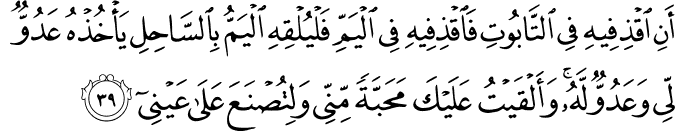 أَنِ ٱقْذِفِيهِ فِى ٱلتَّابُوتِ فَٱقْذِفِيهِ فِى ٱلْيَمِّ فَلْيُلْقِهِ ٱلْيَمُّ بِٱلسَّاحِلِ يَأْخُذْهُ عَدُوٌّ
لِّى وَعَدُوٌّ لَّهُۥ ۚ وَأَلْقَيْتُ عَلَيْكَ مَحَبَّةً مِّنِّى وَلِتُصْنَعَ عَلَىٰ عَيْنِىٓ ٣٩